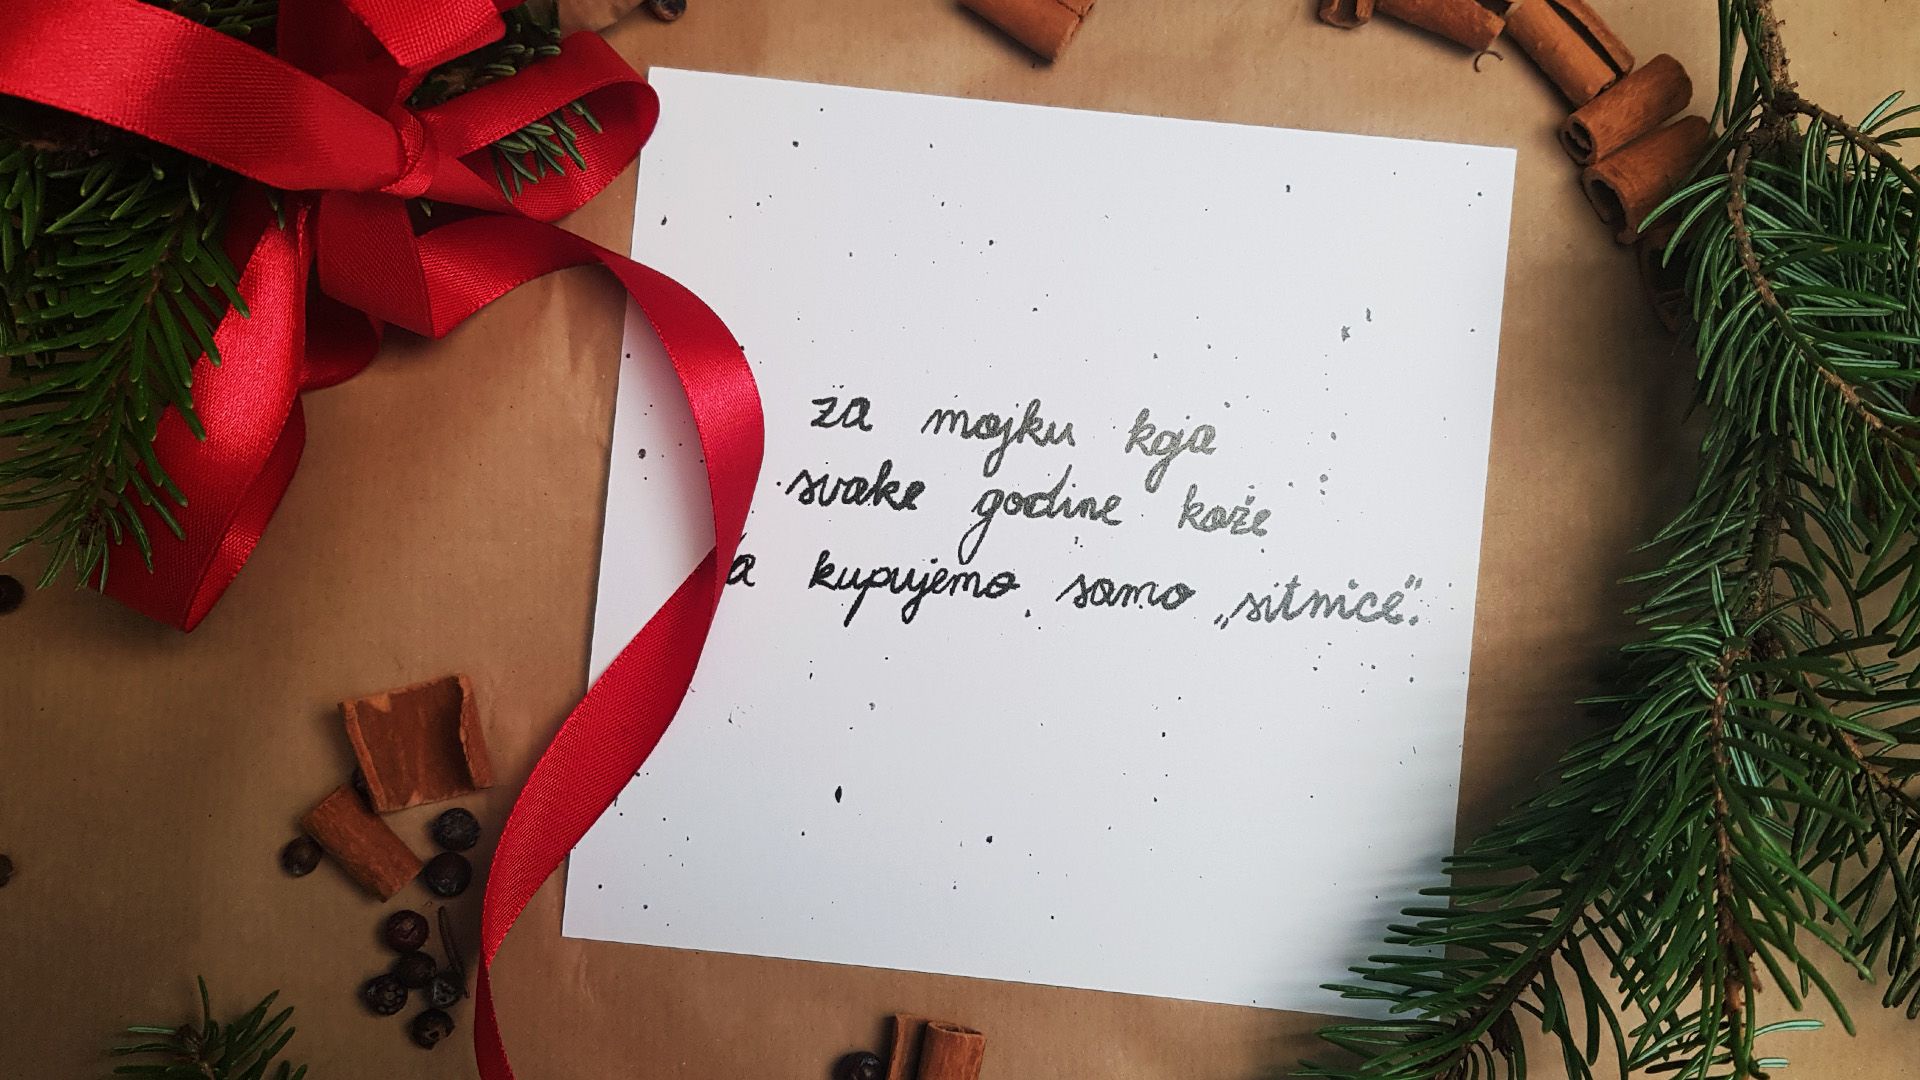 za majku koja
svake godine kaže
da kupujemo samo „sitnice“.